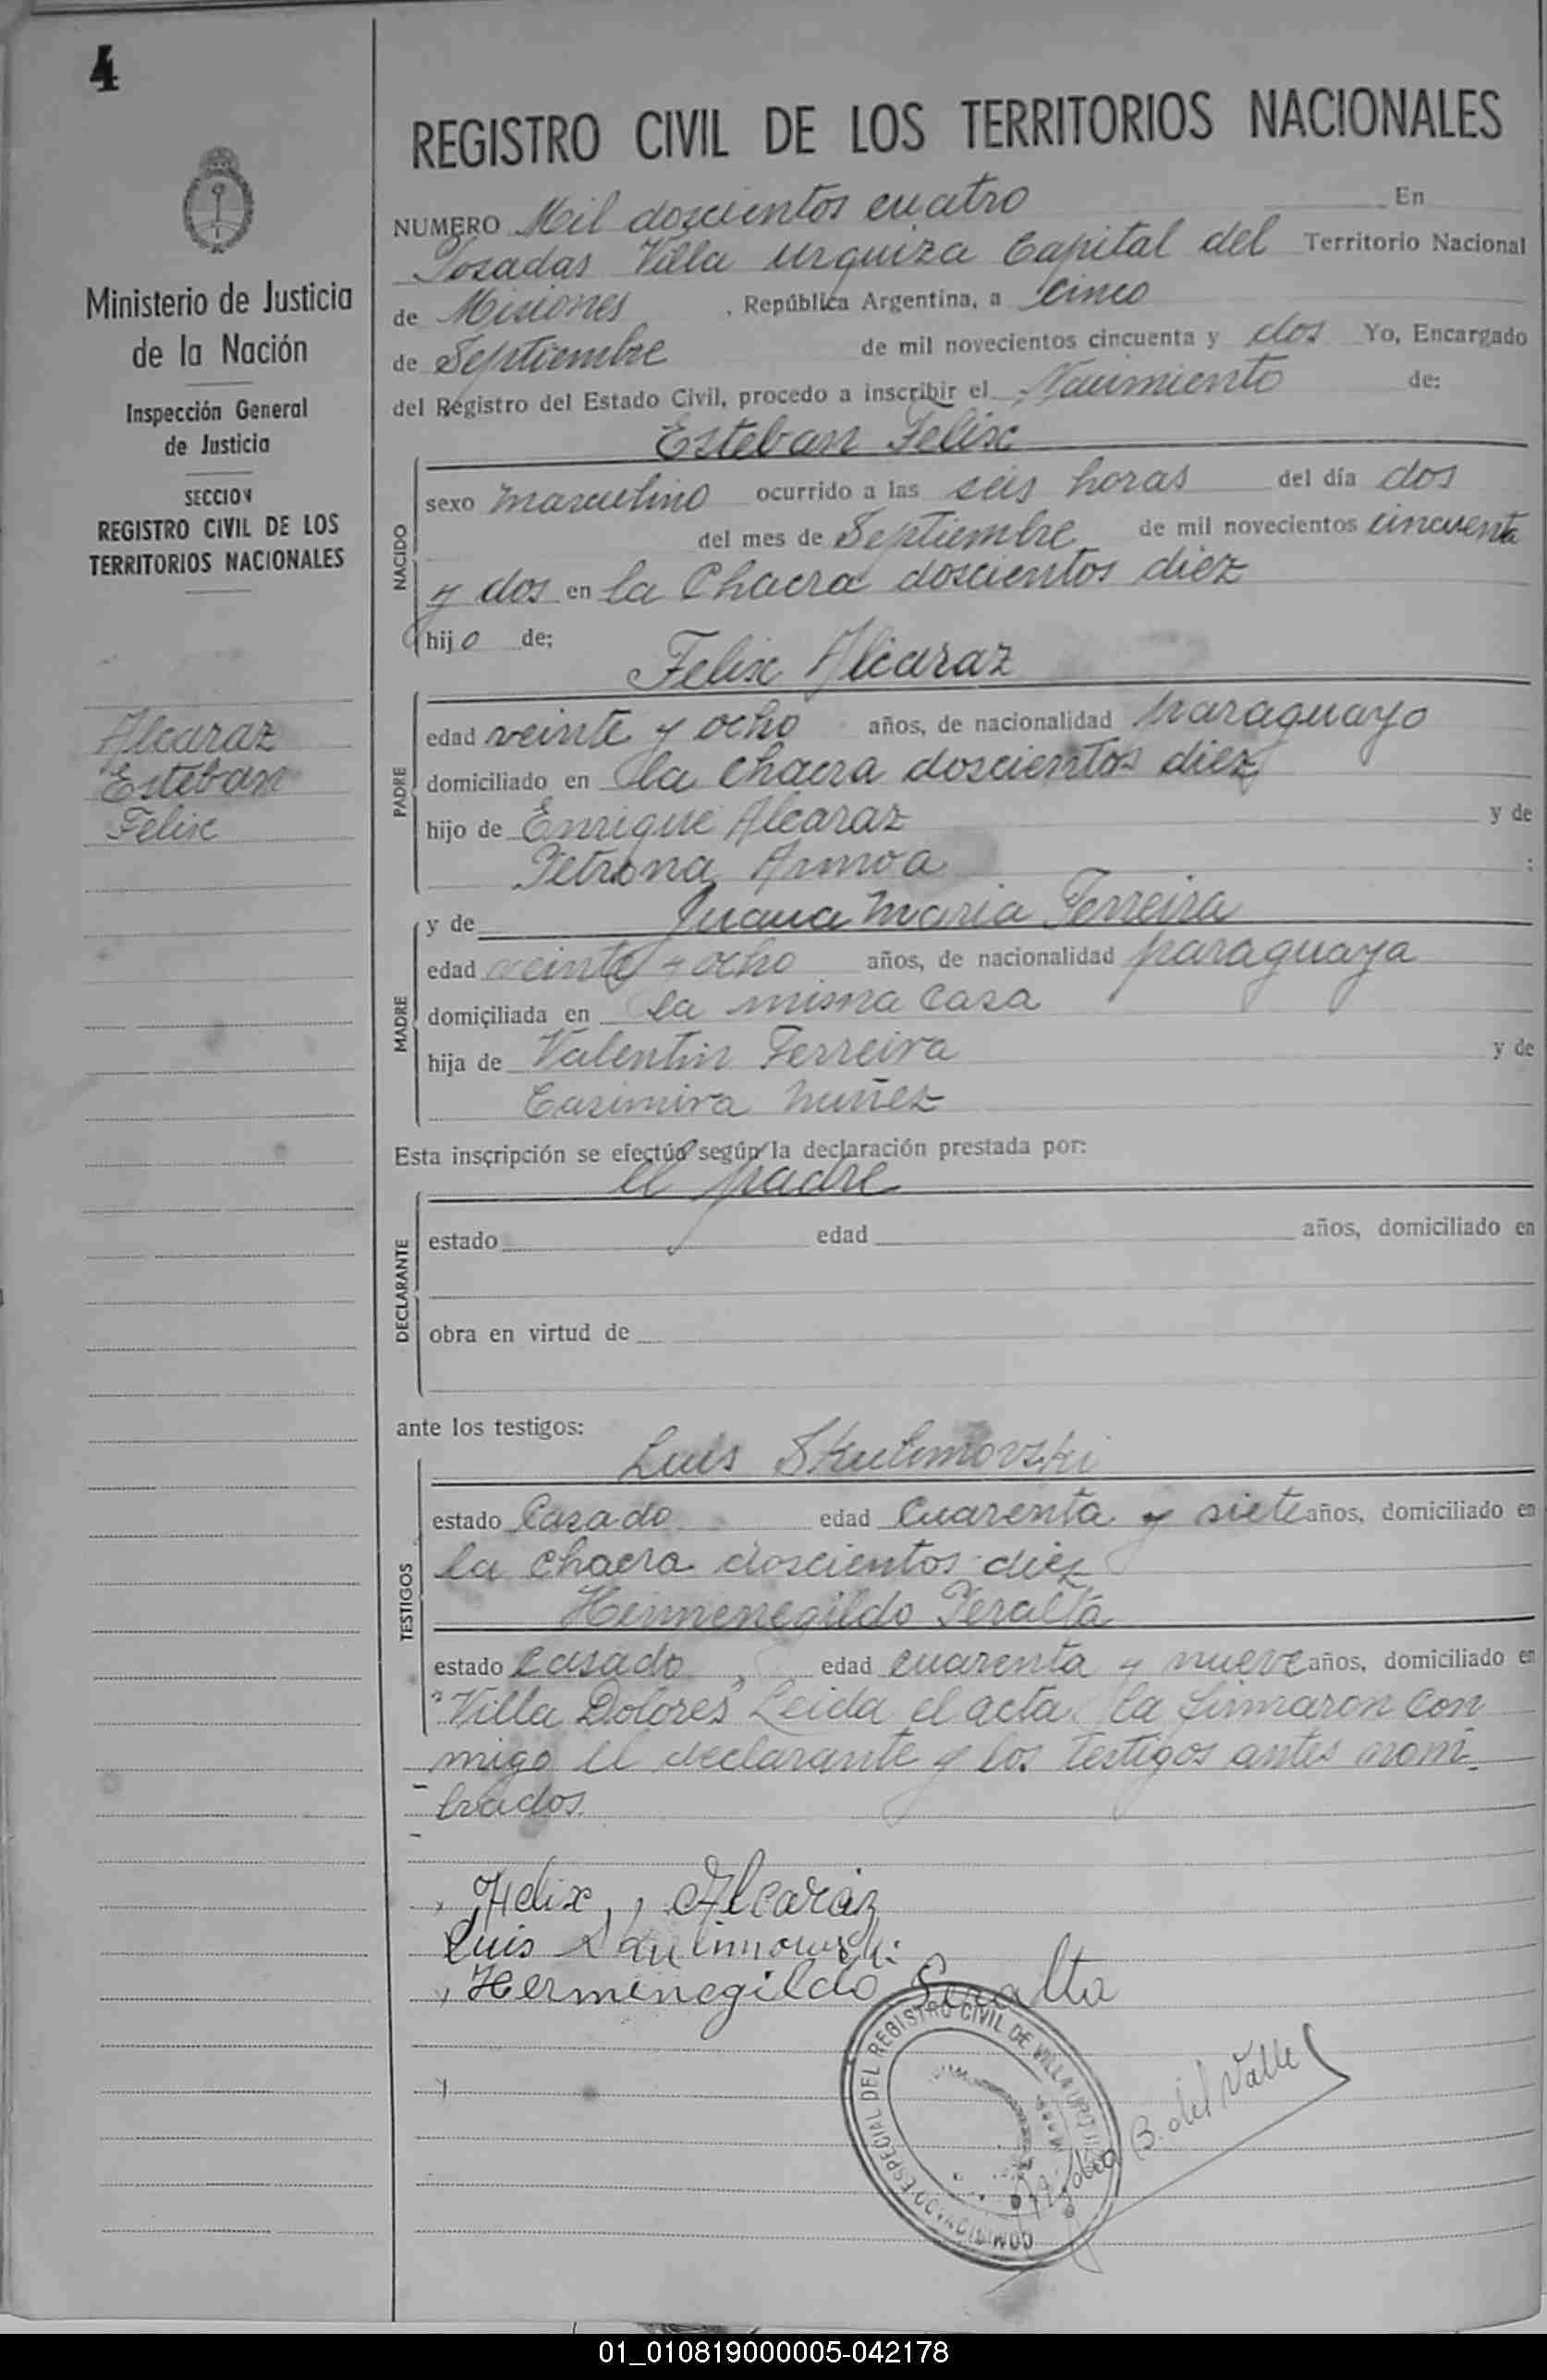 4
Ministerio de Justicia
de la Nación
Inspección General
de Justicia
SECCION
REGISTRO CIVIL DE LOS
TERRITORIOS NACIONALES
Alcaraz
Esteban
Felix
REGISTRO CIVIL DE LOS TERRITORIOS NACIONALES
NUMERO Mil doscientos cuatro En
Posadas Villa Urquiza Capital del Territorio Nacional
de Misiones, República Argentina, a cinco
de Septiembre de mil novecientos cincuenta y dos Yo, Encargado
del Registro del Estado Civil, procedo a inscribir el Nacimiento de:
Esteban Felix
NACIDO
sexo masculino ocurrido a las seis horas del día dos
del mes de Septiembre de mil novecientos cincuenta
y dos en la Chacra doscientos diez
hijo de;
Felix Alcaraz
PADRE
edad veinte y ocho años, de nacionalidad paraguayo
domiciliado en la chacra doscientos diez
hijo de Enrique Alcaraz y de
Petrona Armoa :
MADRE
y de Juana Maria Ferreira
edad veinte y ocho años, de nacionalidad paraguaya
domiciliada en la misma casa
hija de Valentin Ferreira y de
Casimira Nuñez
Esta inscripción se efectúa según la declaración prestada por:
el padre
DECLARANTE
estado edad años, domiciliado en
obra en virtud de
ante los testigos:
Luis Skulimovski
TESTIGOS
estado Casado edad Cuarenta y siete años, domiciliado en
la chacra doscientos diez
Hermenegildo Peralta
estado casado, edad cuarenta y nueve años, domiciliado en
"Villa Dolores" Leida el acta la firmaron con
migo el declarante y los testigos antes nom-
brados.
Felix Alcaraz
Luis
Hermenegildo Peralta
COMISIONADO ESPECIAL DEL REGISTRO CIVIL DE VILLA URQUIZA
B. del Valle
01_010819000005-042178